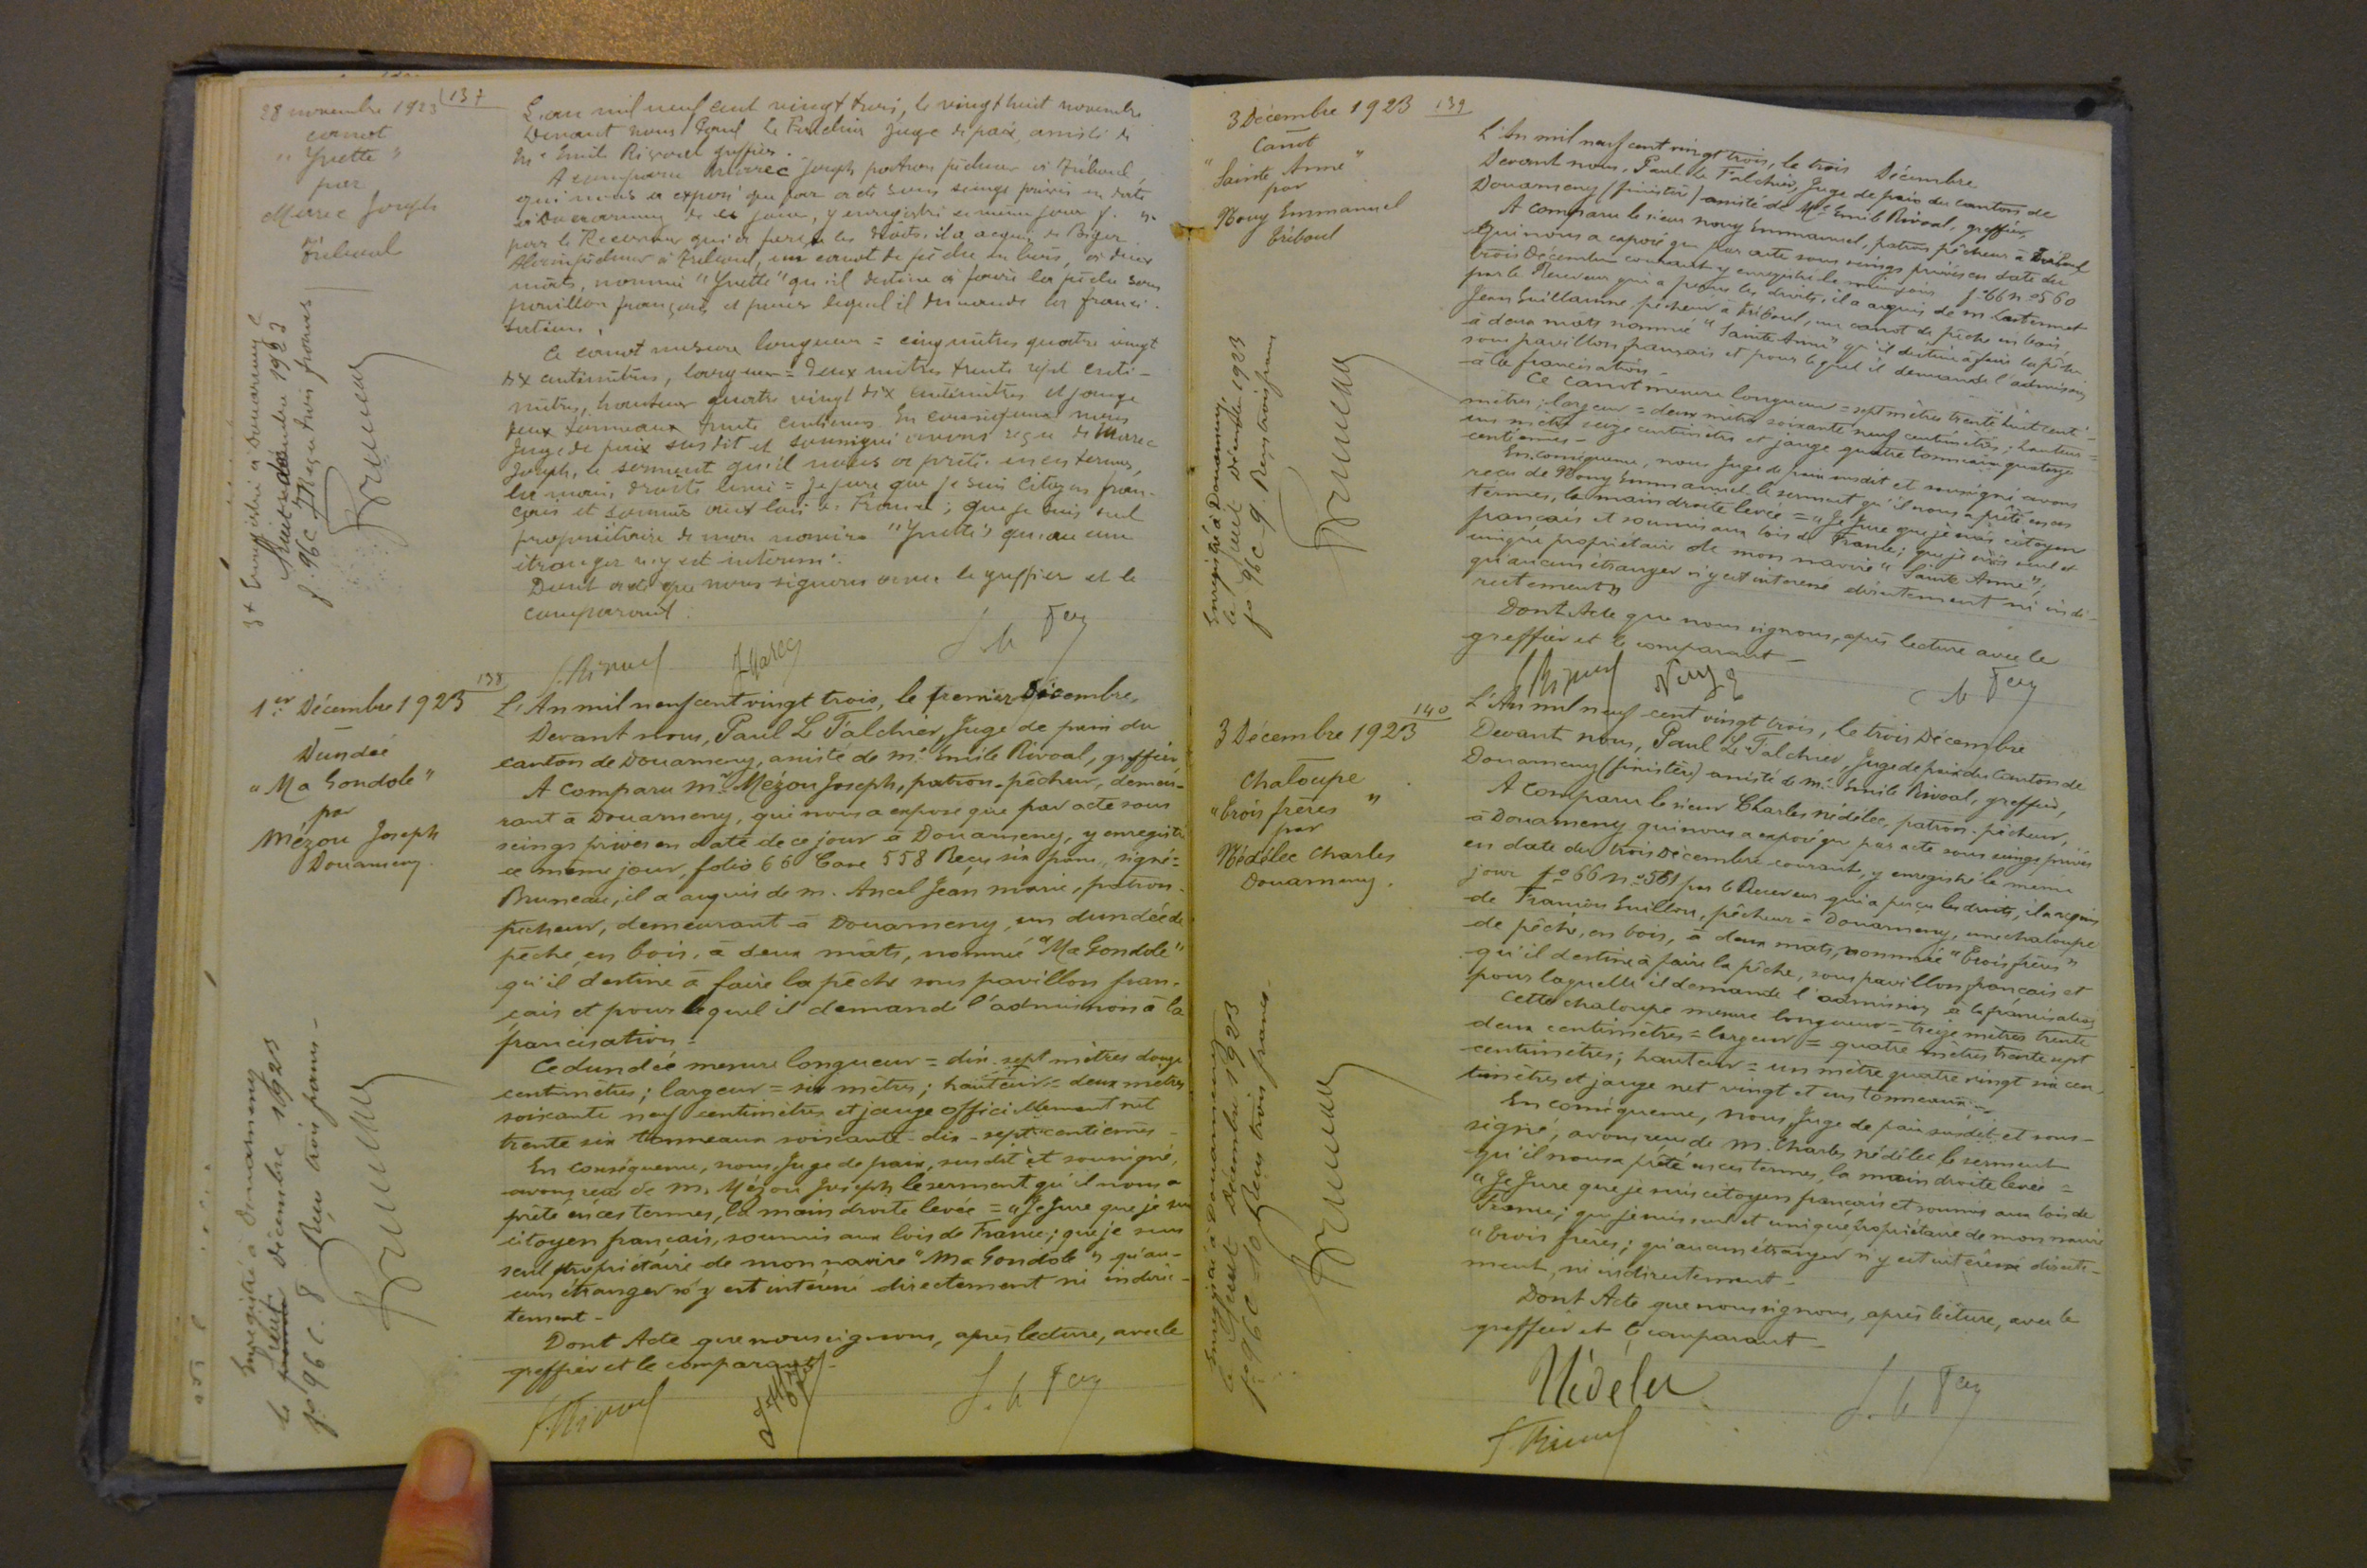 28 novembre 1923
137
canot
"Yvette"
par
Marec Joseph
Tréboul
L'an mil neuf cent vingt trois, le vingt huit novembre
Devant nous Paul Le Falchier Juge de paix, assisté de
Me Emile Rivoal greffier.
A comparu Marec Joseph patron pêcheur à Tréboul,
qui nous a exposé que par acte sous seings privés en date
à Douarnenez de ce jour, y enregistré le même jour f.
par le Receveur qui a perçu les droits, il a acquis de Biger
pêcheur à Tréboul, un canot de pêche en bois, à deux
mâts, nommé "Yvette" qu'il destine à faire la pêche sous
pavillon français et pour lequel il demande la franci-
sation.
Ce canot mesure longueur = cinq mètres quatre vingt
dix centimètres, largeur = deux mètres trente sept centi-
mètres, hauteur quatre vingt dix centimètres et jauge
deux tonneaux trente centièmes. En conséquence nous
Juge de paix susdit et soussigné avons reçu de Marec
Joseph, le serment qu'il nous a prêté en ces termes,
la main droite levée = Je jure que je suis citoyen fran-
çais et soumis aux lois de France ; que je suis seul
propriétaire de mon navire "Yvette" qu'aucun
étranger n'y est intéressé.
Dont acte que nous signons avec le greffier et le
comparant.
E. Rivoal J Marec
Enregistré à Douarnenez le
huit décembre 1923
f. 96 c. 7 Reçu trois francs
Bruneau
138
1er Décembre 1923
Dundée
"Ma Gondole"
par
Mézou Joseph
Douarnenez.
L'An mil neuf cent vingt trois, le premier Décembre,
Devant nous, Paul Le Falchier, Juge de paix du
canton de Douarnenez, assisté de Me Emile Rivoal, greffier,
A comparu Mr Mézou Joseph, patron-pêcheur, demeu-
rant à Douarnenez, qui nous a exposé que par acte sous
seings privés en date de ce jour à Douarnenez, y enregistré
ce même jour, folio 66 Case 558 Reçu six francs, signé =
Bruneau, il a acquis de M. Ancel Jean Marie, patron-
pêcheur, demeurant à Douarnenez, un dundée de
pêche, en bois, à deux mâts, nommé "Ma Gondole"
qu'il destine à faire la pêche sous pavillon fran-
çais et pour lequel il demande l'admission à la
francisation =
Ce dundée mesure longueur = dix-sept mètres douze
centimètres ; largeur = six mètres ; hauteur = deux mètres
soixante neuf centimètres et jauge officiellement net
trente six tonneaux soixante-dix-sept centièmes -
En conséquence, nous, Juge de paix, susdit et soussigné,
avons reçu de M. Mézou Joseph le serment qu'il nous a
prêté en ces termes, la main droite levée = "Je Jure que je suis
citoyen français, soumis aux lois de France ; que je suis
seul propriétaire de mon navire "Ma Gondole" qu'au-
cun étranger n'y est intéressé directement ni indirec-
tement -
Dont Acte que nous signons, après lecture, avec le
greffier et le comparant -
E. Rivoal
Enregistré à Douarnenez
le huit Décembre 1923
fo 96 c. 8 Reçu trois francs -
Bruneau
3 Décembre 1923
139
Canot
"Sainte Anne"
par
Nouy Emmanuel
Tréboul
L'An mil neuf cent vingt trois, le trois Décembre
Devant nous, Paul Le Falchier, Juge de paix du canton de
Douarnenez (finistère) assisté de Me Emile Rivoal, greffier,
A Comparu le sieur Nouy Emmanuel, patron pêcheur à Tréboul
qui nous a exposé que par acte sous seings privés en date du
trois Décembre courant, y enregistré le même jour fo 66 no 560
par le Receveur qui a perçu les droits, il a acquis de M.
Jean Guillaume, pêcheur à Tréboul, un canot de pêche en bois,
à deux mâts nommé "Sainte Anne" qu'il destine à faire la pêche
sous pavillon français et pour lequel il demande l'admission
à la francisation -
Ce canot mesure longueur = sept mètres trente huit centi-
mètres ; largeur = deux mètres soixante neuf centimètres ; hauteur =
un mètre seize centimètres et jauge quatre tonneaux quatorze
centièmes -
En conséquence, nous Juge de paix susdit et soussigné avons
reçu de Nouy Emmanuel le serment qu'il nous a prêté en ces
termes, la main droite levée = "Je Jure que je suis citoyen
français et soumis aux lois de France ; que je suis seul et
unique propriétaire de mon navire "Sainte Anne" ;
qu'aucun étranger n'y est intéressé directement ni indi-
rectement"
Dont Acte que nous signons, après lecture avec le
greffier et le comparant -
E Rivoal Nouy E
Enregistré à Douarnenez,
le huit Décembre 1923
fo 96 c. 9. Reçu trois francs
Bruneau
140
3 Décembre 1923
Chaloupe
"Trois frères"
par
Nédélec Charles
Douarnenez.
L'An mil neuf cent vingt trois, le trois Décembre
Devant nous, Paul Le Falchier, Juge de paix du Canton de
Douarnenez (finistère) assisté de Me Emile Rivoal, greffier,
A Comparu le sieur Charles Nédélec, patron-pêcheur,
à Douarnenez qui nous a exposé que par acte sous seings privés
en date du trois Décembre courant, y enregistré le même
jour fo 66 no 561 par le Receveur qui a perçu les droits, il a acquis
de François Guillou, pêcheur à Douarnenez, une chaloupe
de pêche, en bois, à deux mâts, nommée "Trois frères"
qu'il destine à faire la pêche, sous pavillon français et
pour laquelle il demande l'admission à la francisation
Cette chaloupe mesure longueur = treize mètres trente
deux centimètres = largeur = quatre mètres trente sept
centimètres ; hauteur = un mètre quatre vingt six cen-
timètres et jauge net vingt et un tonneaux -
En conséquence, nous, Juge de paix susdit et sous-
signé, avons reçu de M. Charles Nédélec le serment
qu'il nous a prêté en ces termes, la main droite levée =
"Je Jure que je suis citoyen français et soumis aux lois de
France ; que je suis seul et unique propriétaire de mon navire
"Trois frères ; qu'aucun étranger n'y est intéressé directe-
ment, ni indirectement -
Dont Acte que nous signons, après lecture, avec le
greffier et le comparant -
Nédélec
E. Rivoal
Enregistré à Douarnenez
le huit Décembre 1923
fo 96 c 10 Reçu trois francs -
Bruneau